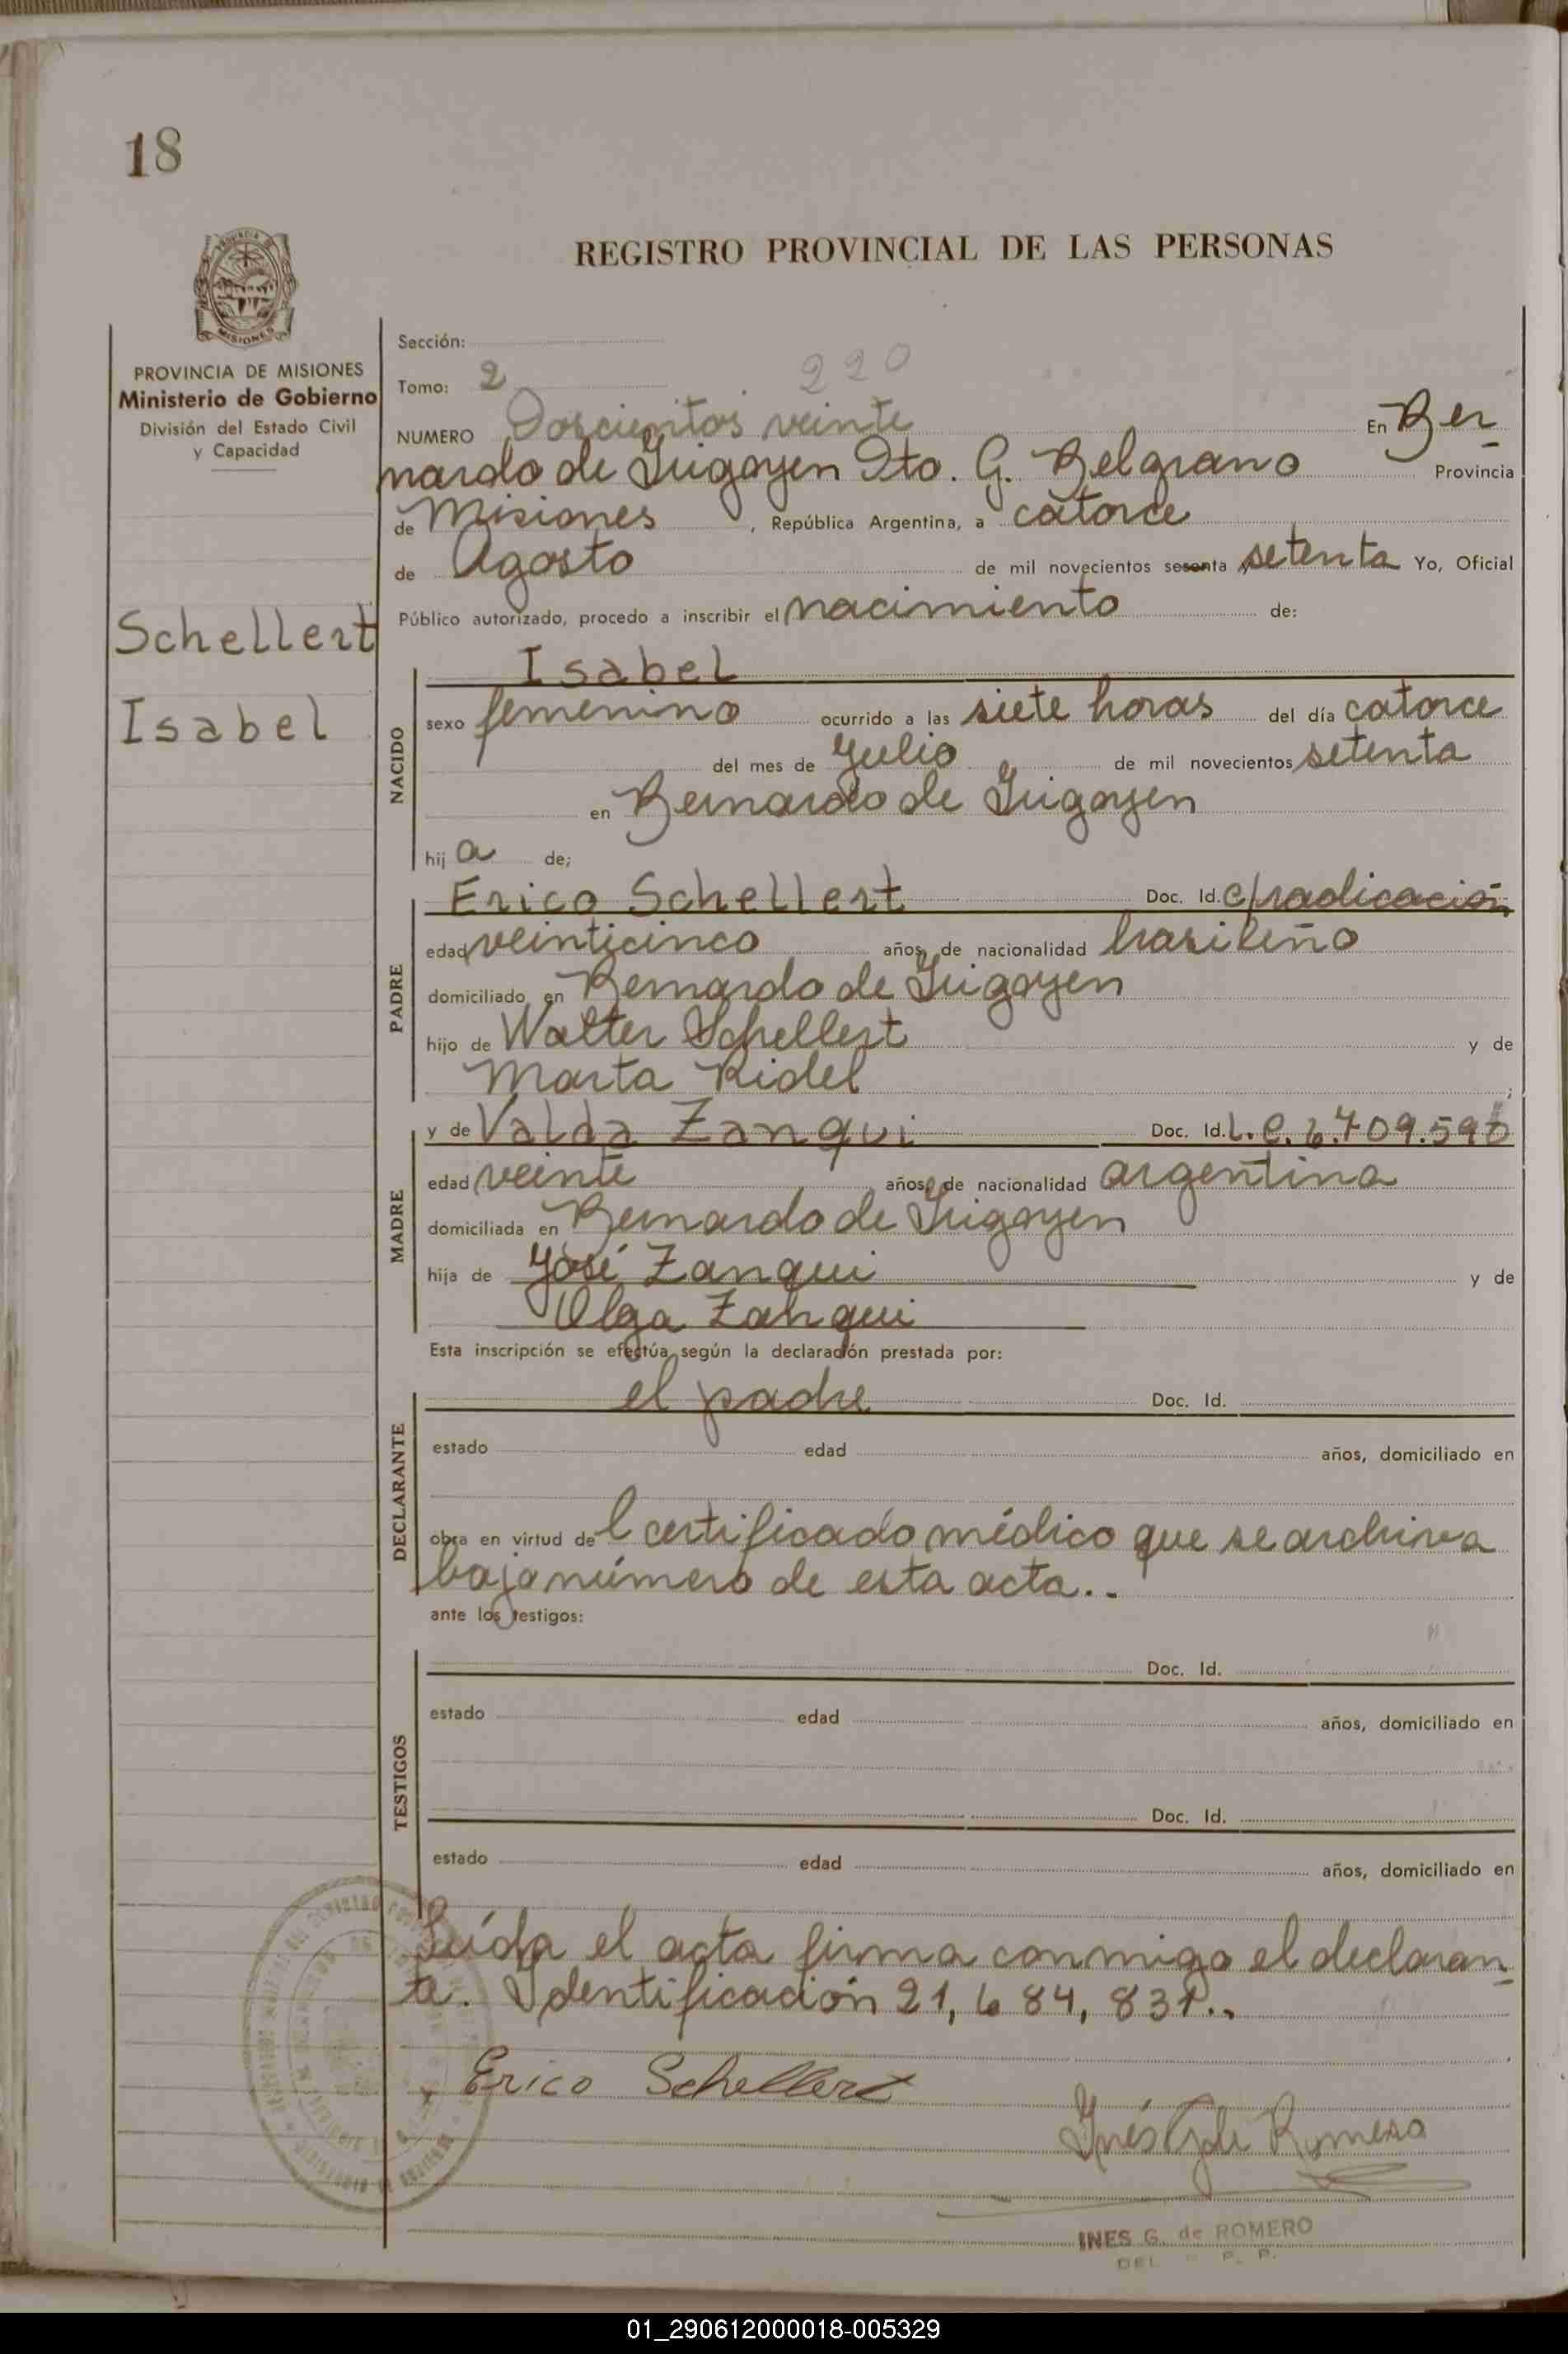 18
REGISTRO PROVINCIAL DE LAS PERSONAS
MISIONES
PROVINCIA DE MISIONES
Ministerio de Gobierno
División del Estado Civil
y Capacidad
Schellert
Isabel
Sección:
Tomo: 2 220
NUMERO Doscientos veinte En Ber-
nardo de Irigoyen Dto. G. Belgrano Provincia
de Misiones, República Argentina, a catorce
de Agosto de mil novecientos sesenta setenta Yo, Oficial
Público autorizado, procedo a inscribir el nacimiento de:
NACIDO
Isabel
sexo femenino ocurrido a las siete horas del día catorce
del mes de Julio de mil novecientos setenta
en Bernardo de Irigoyen
hij a de;
PADRE
Erico Schellert Doc. Id. c/radicación
edad veinticinco años, de nacionalidad brasileño
domiciliado en Bernardo de Irigoyen
hijo de Walter Schellert y de
Marta Ridel;
MADRE
y de Valda Zanqui Doc. Id. L.C. 6.709.596
edad veinte años, de nacionalidad argentina
domiciliada en Bernardo de Irigoyen
hija de José Zanqui y de
Olga Zanqui
Esta inscripción se efectúa según la declaración prestada por:
DECLARANTE
el padre Doc. Id.
estado edad años, domiciliado en
obra en virtud del certificado médico que se archiva
bajo número de esta acta..
ante los testigos:
TESTIGOS
Doc. Id.
estado edad años, domiciliado en
Doc. Id.
estado edad años, domiciliado en
Leída el acta firma conmigo el declaran-
te. Identificación 21,684,831..
Erico Schellert
Inés G de Romero
INES G. de ROMERO
DEL R. P. P.
01_290612000018-005329